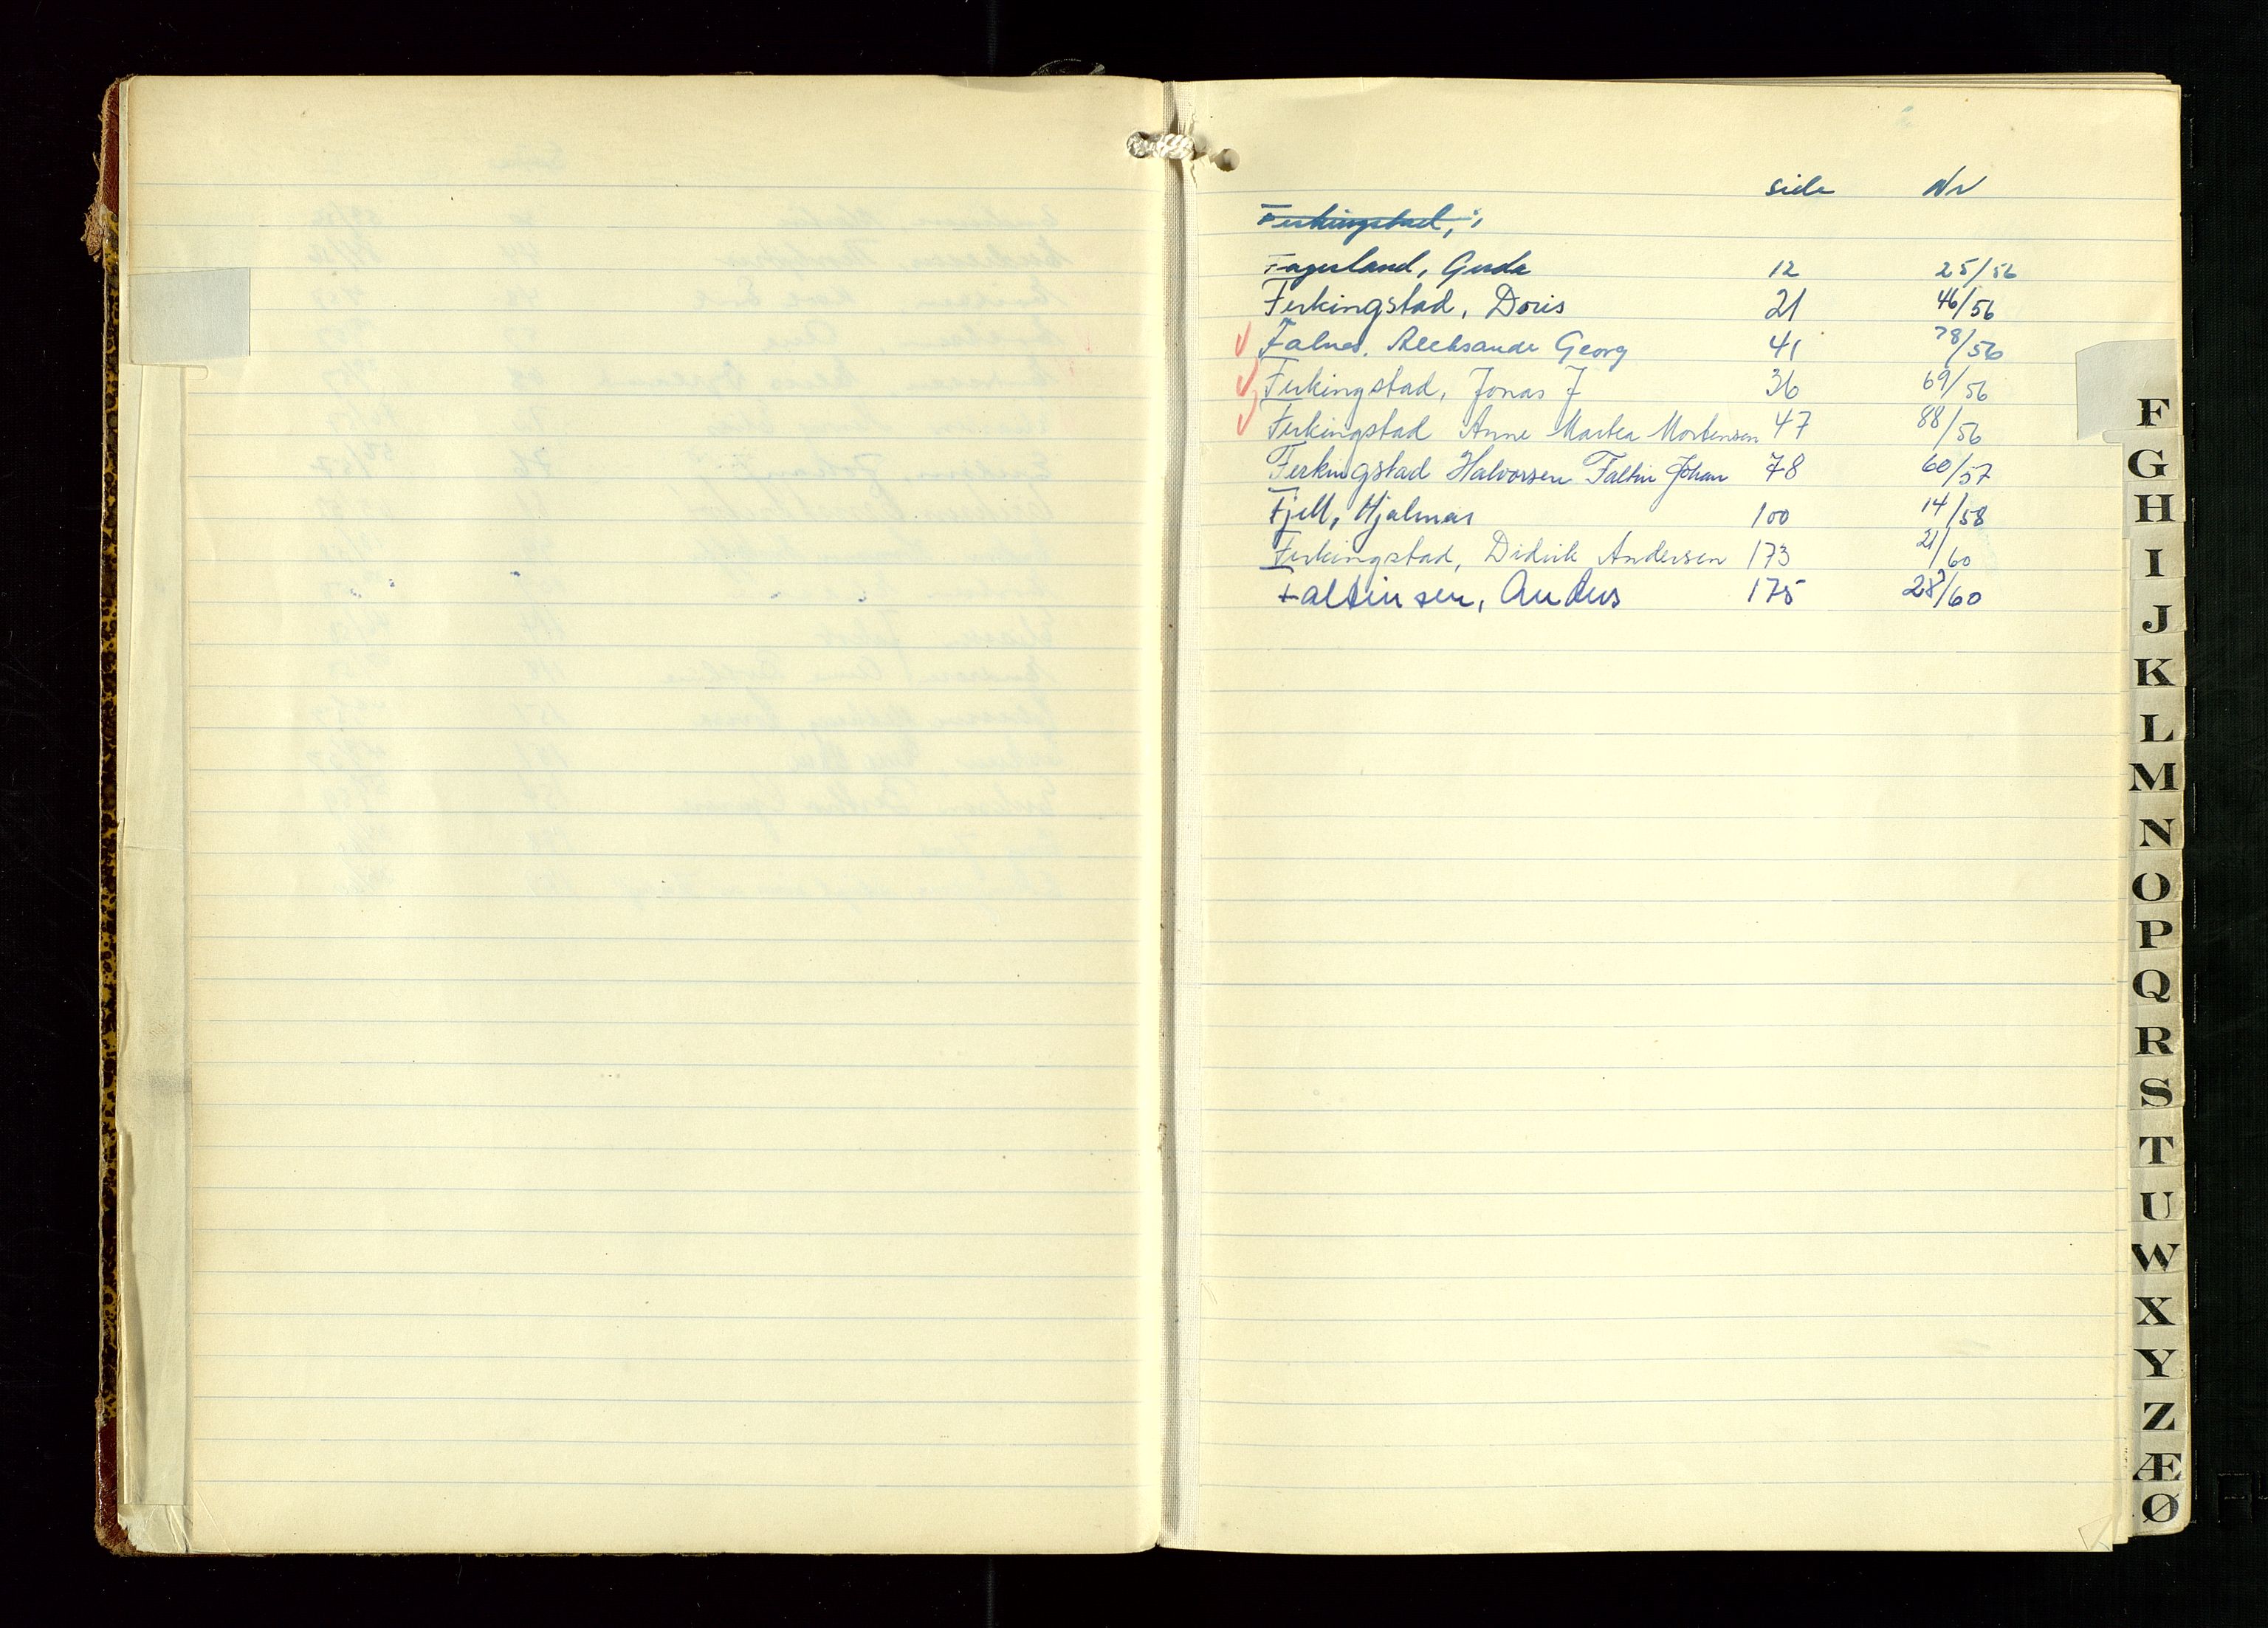 side Nr
Ferkingstad,
Fagerland, Guda 12 25/56
Ferkingstad, Doris 21 46/56
Falnes. Aleksande Georg 41 78/56
Ferkingstad, Jonas J 36 69/56
Ferkingstad Anne Martea Mortensen 47 88/56
Ferkingstad Halvorsen Faltin Johan 78 60/57
Fjell, Hjalmar 100 14/58
Ferkingstad, Didrik Andersen 173 21/60
Faltinsen, Anders 175 28/60
F
G
H
I
J
K
L
M
N
O
P
Q
R
S
T
U
W
X
Y
Z
Æ
Ø